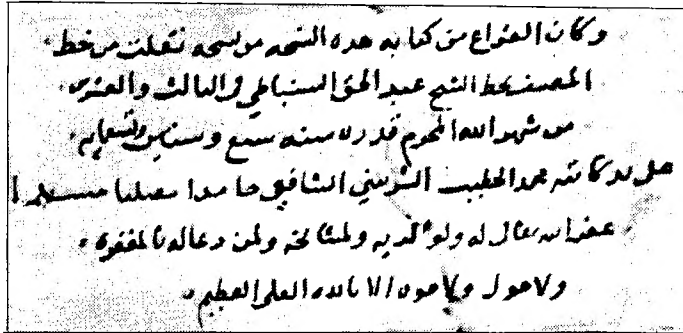 وكان الفراغ من كتابه هده النسخه من نسخه نقلت من خط
المصنف بخط الشيخ عبد الحق السنباطي في الثالث والعشرين
من شهر الله المحرم قدره سنه سبع وستين وتسعمايه
على يد كاتبه محمد الخطيب الشربيني الشافعي حامدا مصليا مسلما
غفر الله تعالى له ولوالديه ولمشائخه ولمن دعا له بالمغفره
ولا حول ولا قوه الا بالله العلى العظيم